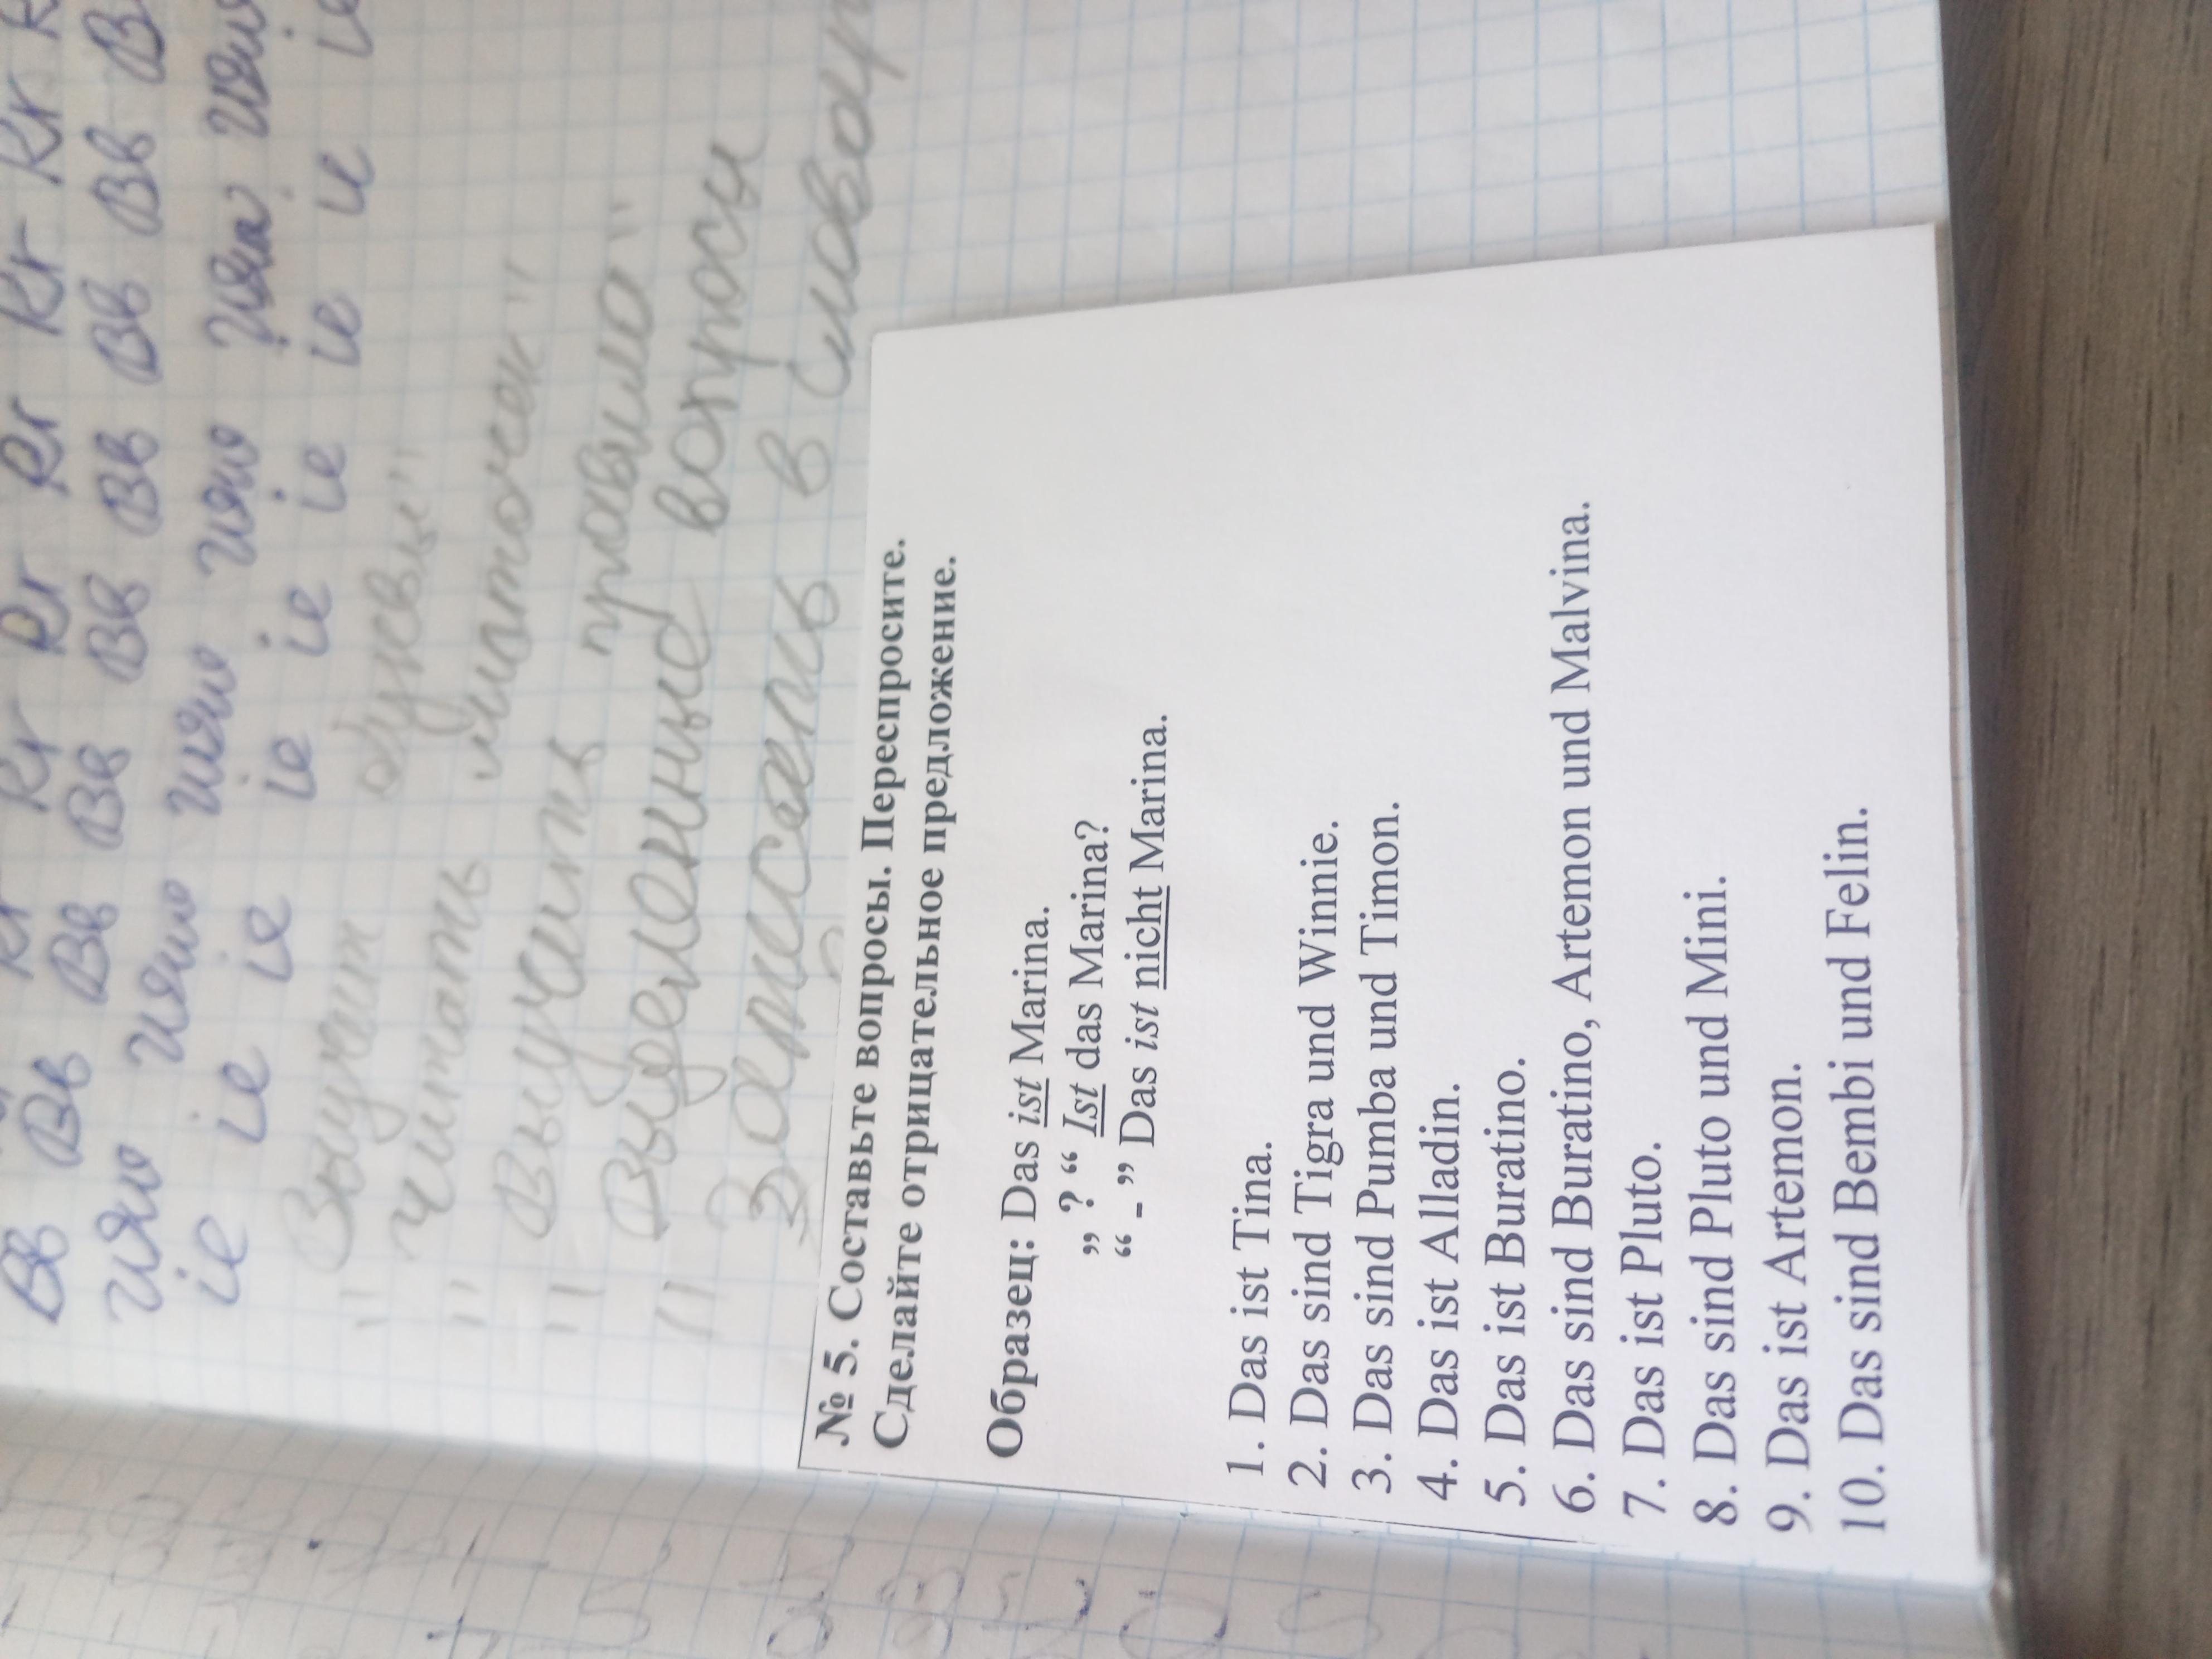 Rr Rr Rr Rr Rr Rr
Вв Вв Вв Вв Вв Вв Вв Вв
ie ie ie ie ie ie ie ie
" Выучит буквы"
" читать "листочек"
" выучить правило"
" выделенные вопросы
записать в словарь
№ 5. Составьте вопросы. Переспросите.
Сделайте отрицательное предложение.
Образец: Das ist Marina.
„ ? “ Ist das Marina?
“ - ” Das ist nicht Marina.
1. Das ist Tina.
2. Das sind Tigra und Winnie.
3. Das sind Pumba und Timon.
4. Das ist Alladin.
5. Das ist Buratino.
6. Das sind Buratino, Artemon und Malvina.
7. Das ist Pluto.
8. Das sind Pluto und Mini.
9. Das ist Artemon.
10. Das sind Bembi und Felin.